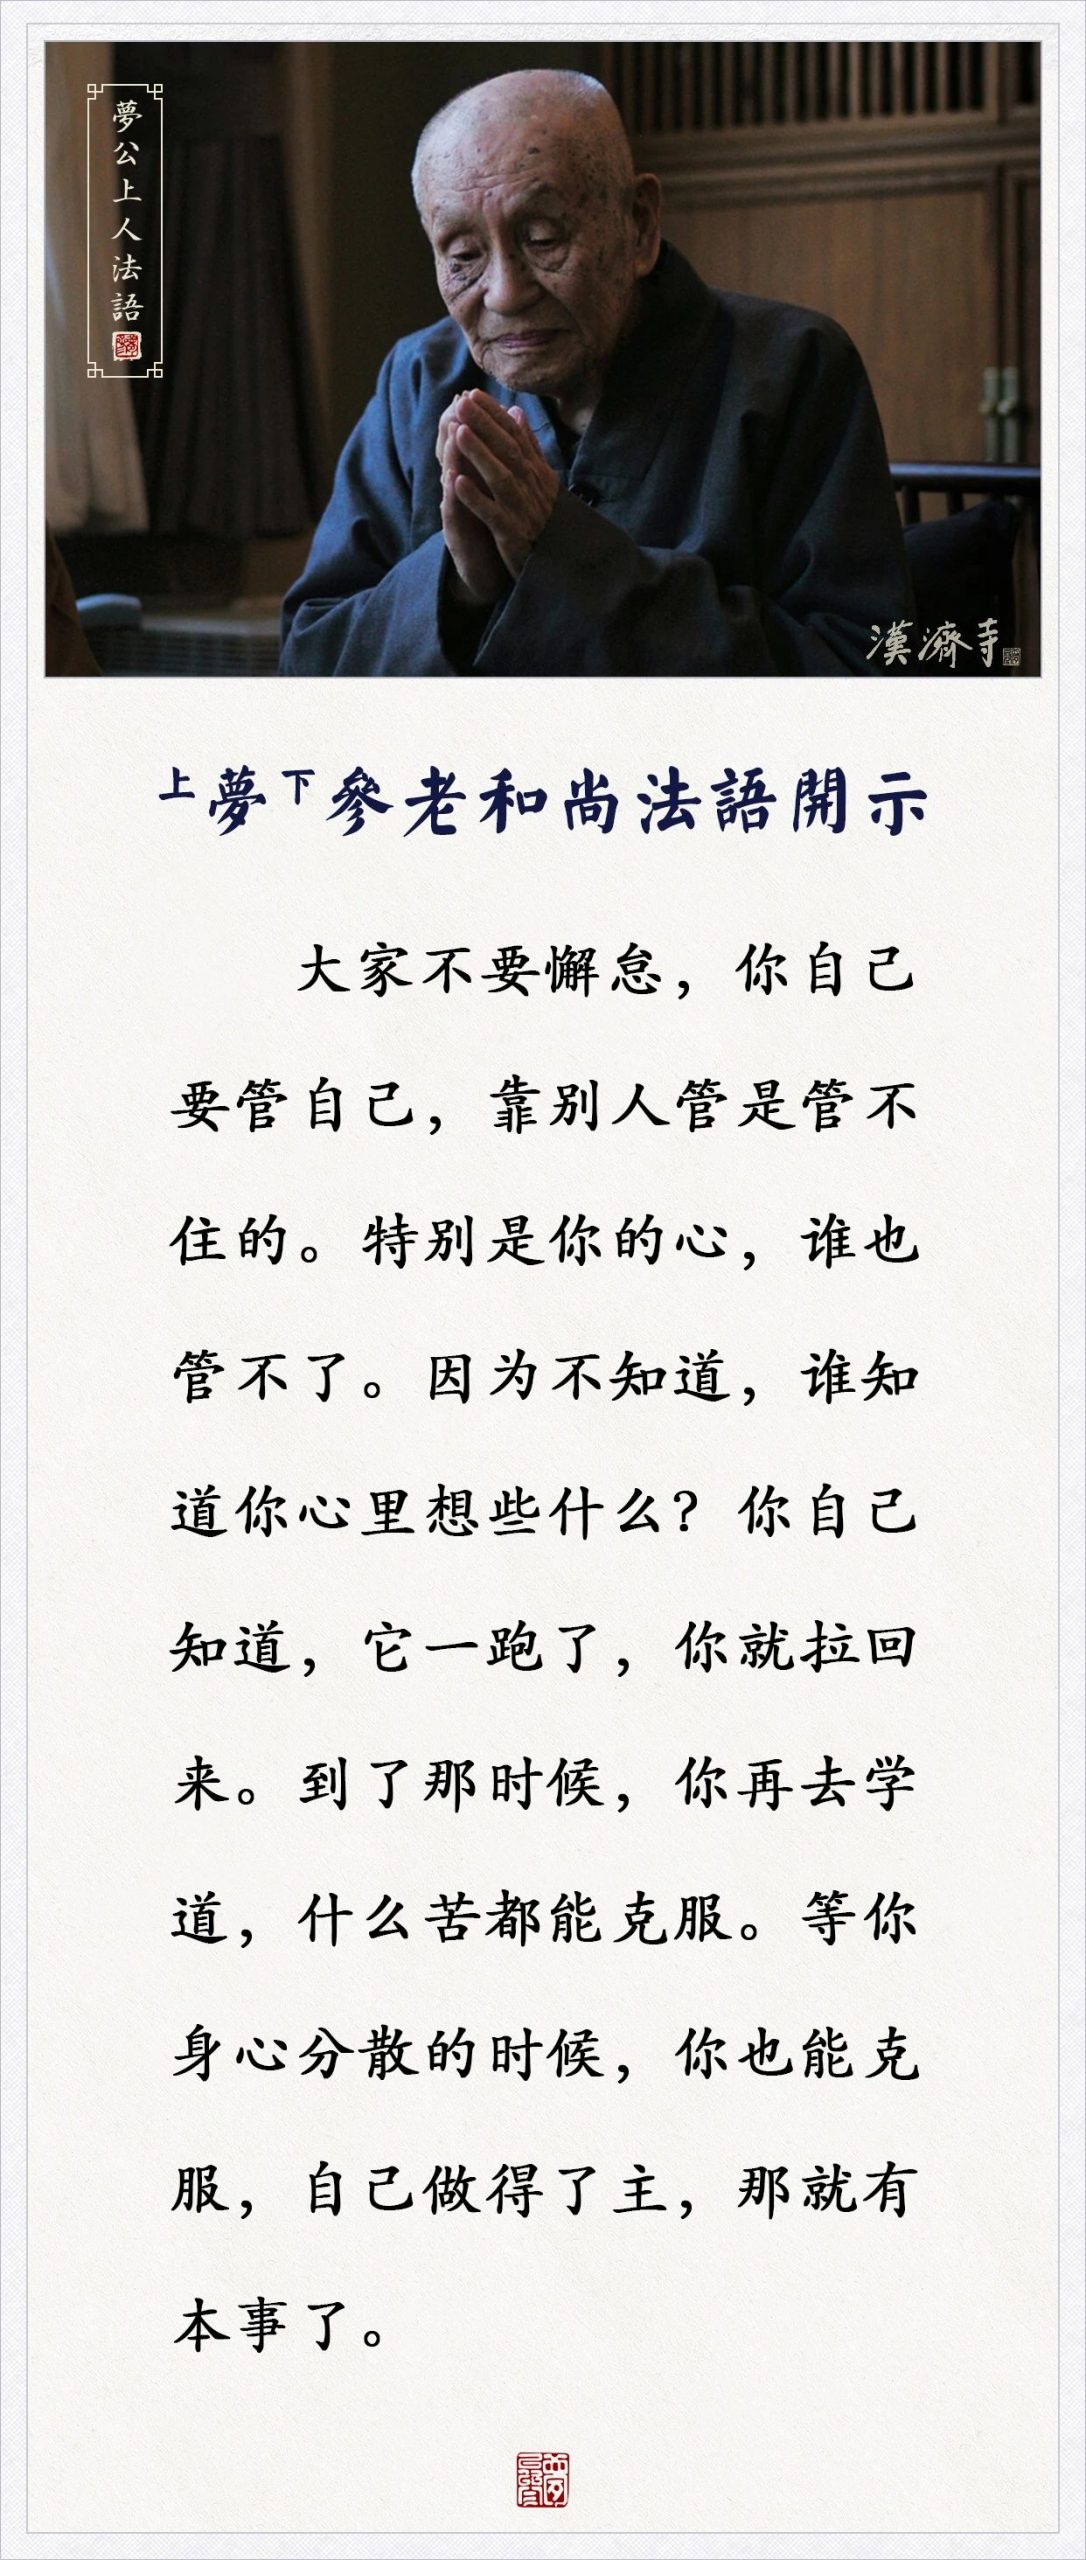 夢公上人法語
漢濟寺
上夢下參老和尚法語開示
大家不要懈怠，你自己
要管自己，靠别人管是管不
住的。特别是你的心，谁也
管不了。因为不知道，谁知
道你心里想些什么？你自己
知道，它一跑了，你就拉回
来。到了那时候，你再去学
道，什么苦都能克服。等你
身心分散的时候，你也能克
服，自己做得了主，那就有
本事了。